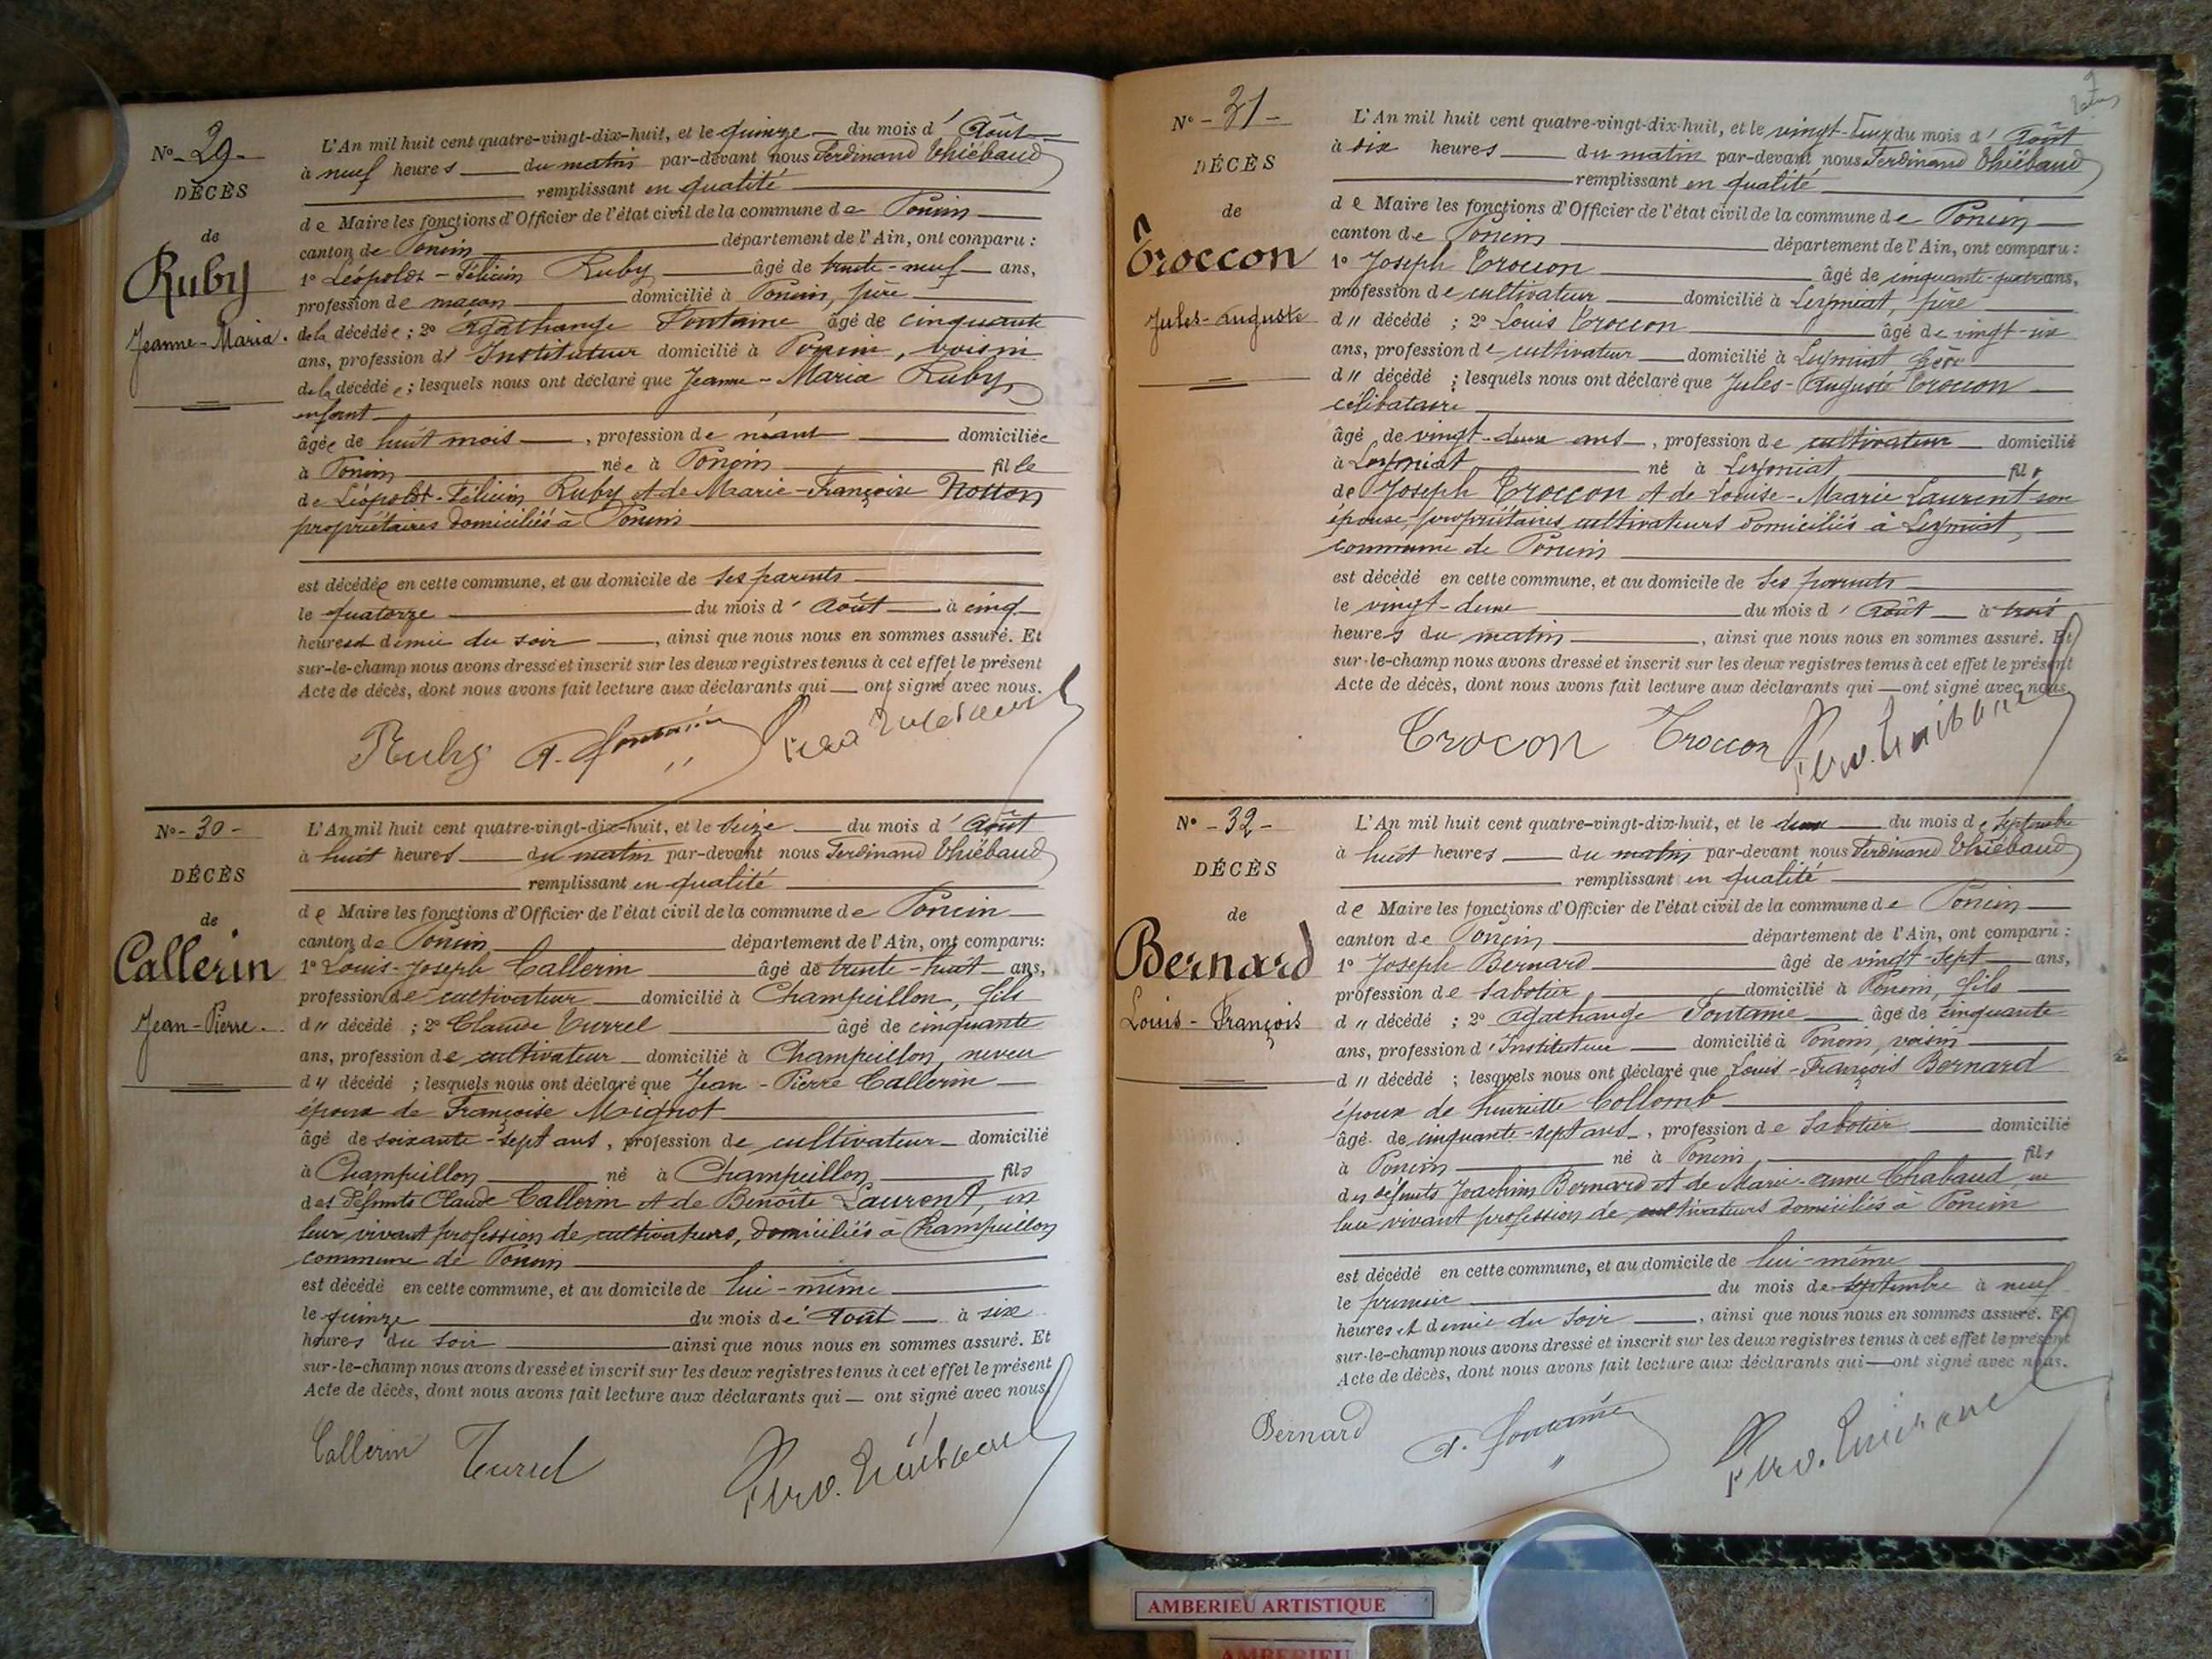 N° - 29 -
DÉCÈS
de
Ruby
Jeanne-Maria.
L'An mil huit cent quatre-vingt-dix-huit, et le quinze du mois d' Août
à neuf heures du matin par-devant nous Ferdinand Thiébaud
remplissant en qualité
de Maire les fonctions d'Officier de l'état civil de la commune de Poncin
canton de Poncin département de l'Ain, ont comparu :
1° Léopold-Félicien Ruby âgé de trente-neuf ans,
profession de maçon domicilié à Poncin, père
de la décédée ; 2° Agathange Fontaine âgé de cinquante
ans, profession d' Instituteur domicilié à Poncin, voisin
de la décédée ; lesquels nous ont déclaré que Jeanne-Maria Ruby,
enfant
âgée de huit mois , profession de néant domiciliée
à Poncin née à Poncin fille
de Léopold-Félicien Ruby et de Marie-Françoise Notton
propriétaires domiciliés à Poncin
est décédée en cette commune, et au domicile de ses parents
le quatorze du mois d' Août à cinq
heures et demie du soir , ainsi que nous nous en sommes assuré. Et
sur-le-champ nous avons dressé et inscrit sur les deux registres tenus à cet effet le présent
Acte de décès, dont nous avons fait lecture aux déclarants qui ont signé avec nous.
Ruby A. Fontaine Ferd. Thiébaud
N° - 30 -
DÉCÈS
de
Callerin
Jean-Pierre.
L'An mil huit cent quatre-vingt-dix-huit, et le seize du mois d' Août
à huit heures du matin par-devant nous Ferdinand Thiébaud
remplissant en qualité
de Maire les fonctions d'Officier de l'état civil de la commune de Poncin
canton de Poncin département de l'Ain, ont comparu :
1° Louis-Joseph Callerin âgé de trente-huit ans,
profession de cultivateur domicilié à Champeillon, fils
d" décédé ; 2° Claude Turrel âgé de cinquante
ans, profession de cultivateur domicilié à Champeillon, neveu
d" décédé ; lesquels nous ont déclaré que Jean-Pierre Callerin
époux de Françoise Moignot
âgé de soixante-sept ans, profession de cultivateur domicilié
à Champeillon né à Champeillon fils
des défunts Claude Callerin et de Benoîte Laurent, en
leur vivant profession de cultivateurs, domiciliés à Champeillon
commune de Poncin
est décédé en cette commune, et au domicile de lui-même
le quinze du mois de Août à six
heures du soir ainsi que nous nous en sommes assuré. Et
sur-le-champ nous avons dressé et inscrit sur les deux registres tenus à cet effet le présent
Acte de décès, dont nous avons fait lecture aux déclarants qui ont signé avec nous.
Callerin Turrel Ferd. Thiébaud
N° - 31 -
DÉCÈS
de
Troccon
Jules-Auguste
L'An mil huit cent quatre-vingt-dix-huit, et le vingt-deux du mois d' Août
à dix heures du matin par-devant nous Ferdinand Thiébaud
remplissant en qualité
de Maire les fonctions d'Officier de l'état civil de la commune de Poncin
canton de Poncin département de l'Ain, ont comparu :
1° Joseph Troccon âgé de cinquante-quatre ans,
profession de cultivateur domicilié à Leymiat, père
d" décédé ; 2° Louis Troccon âgé de vingt-six
ans, profession de cultivateur domicilié à Leymiat frère
d" décédé ; lesquels nous ont déclaré que Jules-Auguste Troccon
célibataire
âgé de vingt-deux ans , profession de cultivateur domicilié
à Leymiat né à Leymiat fils
de Joseph Troccon et de Louise-Marie Laurent son
épouse, propriétaires cultivateurs domiciliés à Leymiat,
commune de Poncin
est décédé en cette commune, et au domicile de ses parents
le vingt-deux du mois d' Août à trois
heures du matin , ainsi que nous nous en sommes assuré. Et
sur-le-champ nous avons dressé et inscrit sur les deux registres tenus à cet effet le présent
Acte de décès, dont nous avons fait lecture aux déclarants qui ont signé avec nous.
Trocon Troccon Ferd. Thiébaud
N° - 32 -
DÉCÈS
de
Bernard
Louis-François
L'An mil huit cent quatre-vingt-dix-huit, et le deux du mois de Septembre
à huit heures du matin par-devant nous Ferdinand Thiébaud
remplissant en qualité
de Maire les fonctions d'Officier de l'état civil de la commune de Poncin
canton de Poncin département de l'Ain, ont comparu :
1° Joseph Bernard âgé de vingt-sept ans,
profession de sabotier domicilié à Poncin, fils
d" décédé ; 2° Agathange Fontaine âgé de cinquante
ans, profession d'Instituteur domicilié à Poncin, voisin
d" décédé ; lesquels nous ont déclaré que Louis-François Bernard
époux de henriette Collomb
âgé de cinquante-sept ans , profession de Sabotier domicilié
à Poncin né à Poncin fils
des défunts Joachim Bernard et de Marie-Anne Chabaud en
leur vivant profession de cultivateurs domiciliés à Poncin
est décédé en cette commune, et au domicile de lui-même
le premier du mois de septembre à neuf
heures et demie du soir , ainsi que nous nous en sommes assuré. Et
sur-le-champ nous avons dressé et inscrit sur les deux registres tenus à cet effet le présent
Acte de décès, dont nous avons fait lecture aux déclarants qui ont signé avec nous.
Bernard A. Fontaine Ferd. Thiébaud
AMBERIEU ARTISTIQUE
AMBERIEU